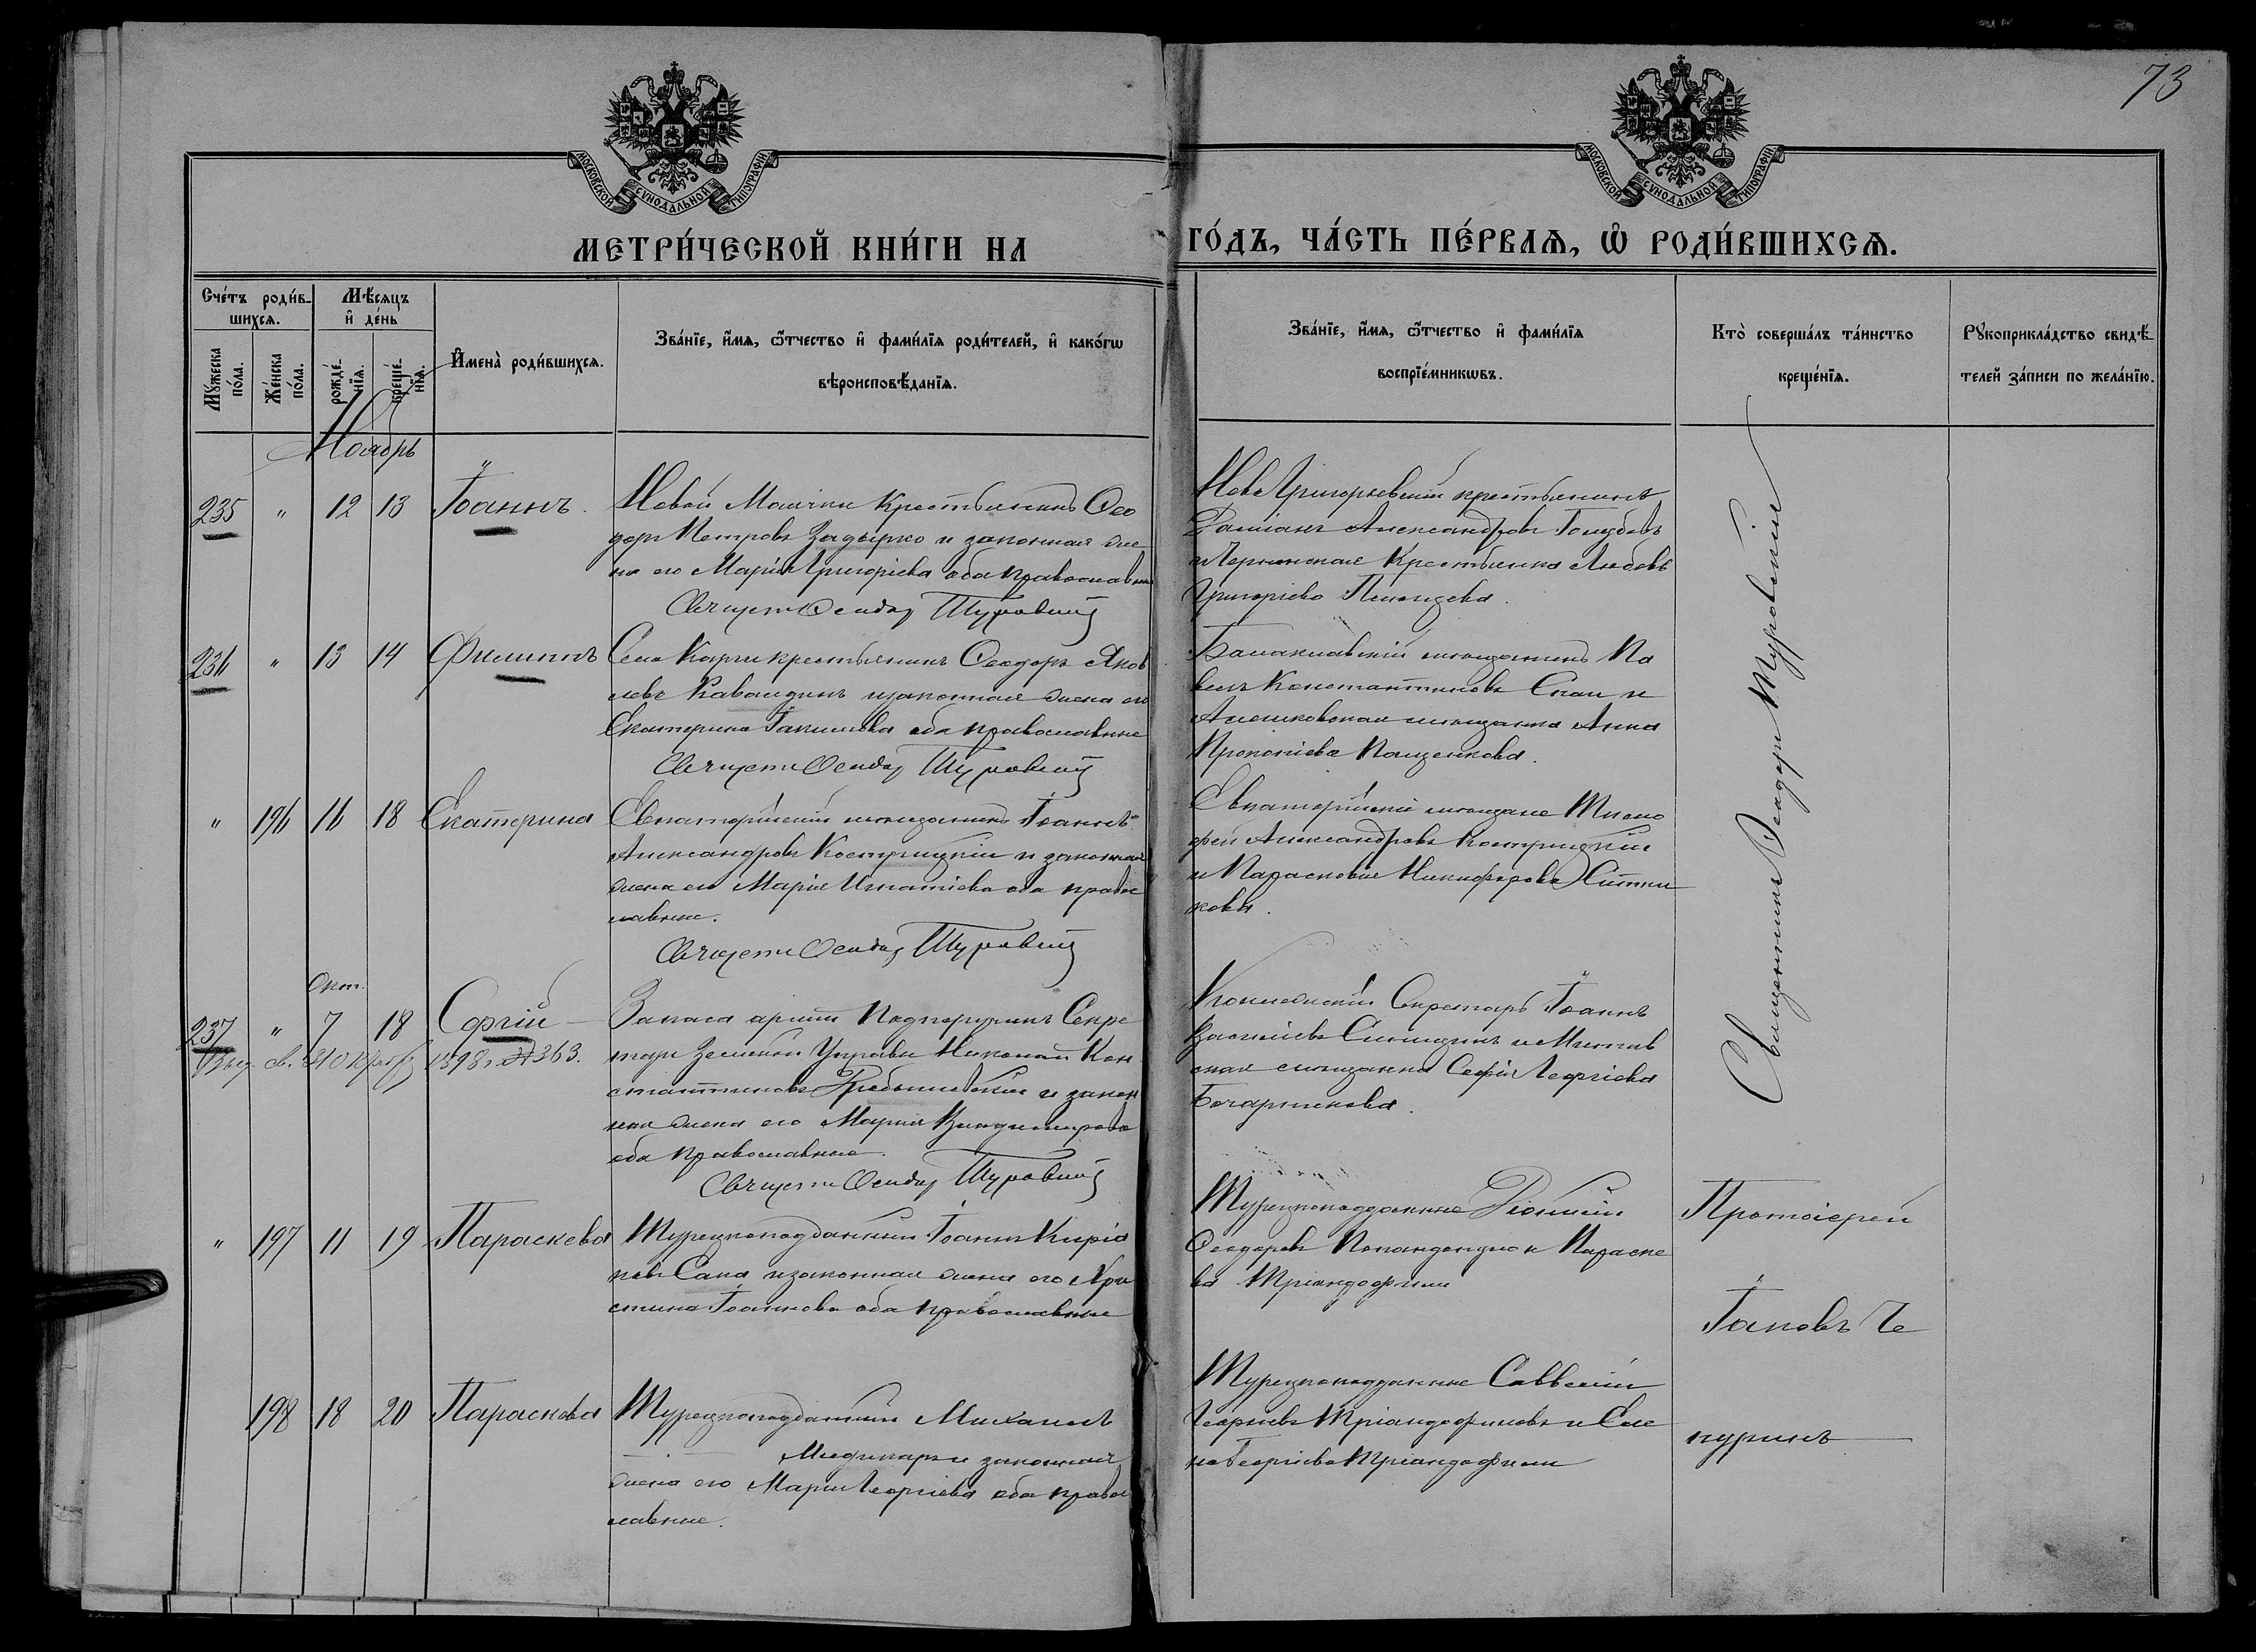 73
МОСКОВСКОЙ СѴНОДАЛЬНОЙ ТИПОГРАФІИ
МОСКОВСКОЙ СѴНОДАЛЬНОЙ ТИПОГРАФІИ
МЕТРИ́ЧЕСКОЙ КНИ́ГИ НА ГО́ДЪ, ЧА́СТЬ ПЕ́РВАѦ, Ѡ РОДИ́ВШИХСѦ.
Сче́тъ роди́в-
шихсѧ.
Мꙋ́жеска по́ла.
Же́нска по́ла.
Мѣ́сѧцъ
и҆ де́нь
рожде́-
нїѧ.
креще́-
нїѧ.
И҆мена̀ роди́вшихсѧ.
Зва́нїе, и҆́мѧ, ѻ҆́тчество и҆ фами́лїѧ роди́телей, и҆ како́гѡ
вѣроисповѣ́данїѧ.
Зва́нїе, и҆́мѧ, ѻ҆́тчество и҆ фами́лїѧ
воспрїе́мникѡвъ.
Кто̀ соверша́лъ та́инство
креще́нїѧ.
Рꙋкоприкла́дство свидѣ́-
телей за́писи по жела́нїю.
Ноябрь
235 " 12 13 Іоаннъ.
Новой Маячки крестьянинъ Ѳео
доръ Петровъ Задырко и законная же
на его Марія Григоріева оба православные
Священ Ѳеодоръ Туровскій
Ново Григорьевскій крестьянинъ
Даміанъ Александровъ Голубевъ
и Чернянская крестьянка Любовь
Григоріева
236 " 13 14 Филиппъ
Села Карги крестьянинъ Ѳеодоръ Яков
левъ и законная жена его
Екатерина Іакимова оба православные
Священ Ѳеодоръ Туровскій
Балаклавскій мѣщанинъ Па
велъ Константиновъ и
Алешковская мѣщанка Анна
Прокопіева Пащенкова.
" 196 16 18 Екатерина
Евпаторійскій мѣщанинъ Іоаннъ
Александровъ Кострицкій и законная
жена его Марія Игнатіева оба право
славные.
Священ Ѳеодоръ Туровскій
Евпаторійскіе мѣщане Тимо
фей Александровъ Кострицкій
и Параскова Никифорова Ситни
кова.
Окт.
237 " 7 18 Сергій
Выд. св. 21 Октяб 1898 г. № 363.
Запаса арміи Подпоручикъ Секре
тарь Земской Управы Николай Кон
стантиновъ и закон
ная жена его Марія Владимирова
оба православные.
Священ Ѳеодоръ Туровскій
Коллежскій Секретарь Іоаннъ
Василіевъ Синицынъ и
ская мѣщанка Софія Георгіева
Бочарникова.
Священникъ Ѳеодоръ Туровскій
" 197 11 19 Параскева
Турецкоподданный Іоаннъ Киріа
ковъ Сака и законная жена его Хри
стина Іоаннова оба православные
Турецкоподданные
Ѳеодоровъ и Параске
ва Тріандафили
198 18 20 Параскева
Турецкоподданный Михаилъ
и законная
жена его Марія Георгіева оба право
славные.
Турецкоподданные Саввелій
Георгіевъ Тріандафиловъ и Еле
на Георгіева Тріандафили
Протоіерей
Іаковъ Че
пуринъ